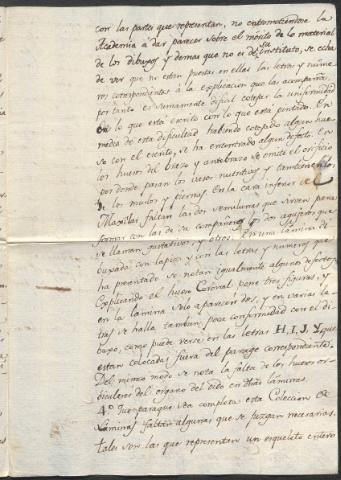 con las partes que representan, no entrometiendose la
Academia à dar parecer sobre el mérito de lo material
de los dibujos y demas que no es de su instituto, se echa
de ver que no estan puestas en ellas las letras y núme-
ros correspondientes à la explicacion que las acompaña,
por tanto es sumamente dificil cotejar la uniformidad
en lo que está escrito con lo que está pintado. En
medio de esta dificultad habiendo cotejado algun hue-
so con el escrito, se ha encontrado algun defecto. En
los huesos del brazo y antebrazo se omite el orificio
por donde pasan los vasos nutritivos y tambien en los
los muslos y piernas. En la cara inferior de la
Maxîlar faltan las dos semilunas que sirven para
formar con las de su compañero los dos agujeros que
se llaman gustativos, y otros. En una lámina de
buxada con lapiz y con las letras y numeros que
ha presentado se notan igualmente algunos defectos,
Explicando el hueso Coronal pone tres figuras, y
en la lámina solo aparecen dos, y en varias le-
tras se halla tambien poca conformidad con el di-
buxo, como puede verse en las letras H, I, J, Y, que
estan colocadas fuera del parage correspondiente.
Del mismo modo se nota la falta de los huesos or-
biculares del organo del oido en dicha lámina.
4.º Que para que sea completa esta Coleccion de
Láminas faltan algunas que se juzgan necesarias.
tales son las que representan un esqueleto entero